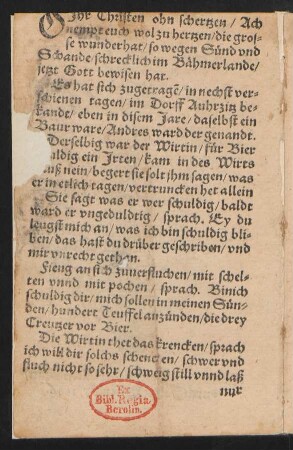 O Jhr Christen ohn schertzen / Ach
nempt euch wol zu hertzen / die gros-
se wunderhat / so wegen Sünd vnd
Schande schrecklich im Bähmerlande /
jetzt Gott bewisen hat.
Es hat sich zugetragē / in nechst ver-
schienen tagen / im Dorff Auhrzitz be-
kande / eben in disem Jare / daselbst ein
Baur ware / Andres ward der genandt.
Derselbig war der Wirtin / für Bier
ldig ein Jrten / kam in des Wirts
uß nein / begert sie solt jhm sagen / was
er in etlich tagen / vertruncken het allein
Sie sagt was er wer schuldig / baldt
ward er vngeduldtig / sprach. Ey du
leugst mich an / was ich bin schuldig bli-
ben / das hast du drüber geschriben / vnd
mir vnrecht gethan.
Fieng an sich zuuerfluchen / mit schel-
ten vnnd mit pochen / sprach. Bin ich
schuldig dir / mich sollen in meinen Sün-
den / hundert Teuffel anzünden / die drey
Creutzer vor Bier.
Die Wirtin thet das krencken / sprach
ich wil dir solchs schencken / schwer vnd
fluch nicht so sehr / schweig still vnnd laß
nur
Ex
Bibl. Regia
Berolin.